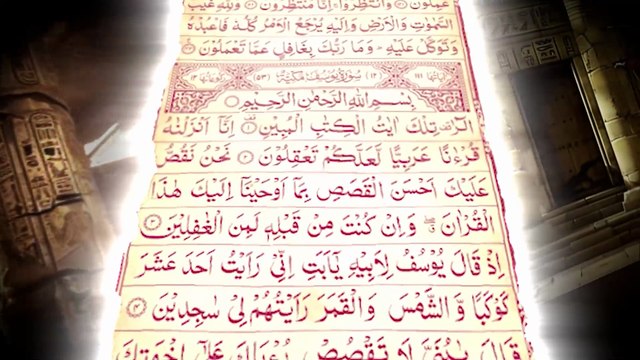 عٰمِلُوْنَ وَانْتَظِرُوْا اِنَّا مُنْتَظِرُوْنَ وَلِلّٰهِ غَيْبُ
السَّمٰوٰتِ وَالْاَرْضِ وَاِلَيْهِ يُرْجَعُ الْاَمْرُ كُلُّهٗ فَاعْبُدْهُ
وَتَوَكَّلْ عَلَيْهِ وَمَا رَبُّكَ بِغَافِلٍ عَمَّا تَعْمَلُوْنَ
اٰيَاتُهَا ١١١ (١٢) سُوْرَةُ يُوْسُفَ مَكِّيَّةٌ (٥٣) رُكُوْعَاتُهَا ١٢
بِسْمِ اللّٰهِ الرَّحْمٰنِ الرَّحِيْمِ
الٓرٰ تِلْكَ اٰيٰتُ الْكِتٰبِ الْمُبِيْنِ ١ اِنَّآ اَنْزَلْنٰهُ
قُرْءٰنًا عَرَبِيًّا لَّعَلَّكُمْ تَعْقِلُوْنَ ٢ نَحْنُ نَقُصُّ
عَلَيْكَ اَحْسَنَ الْقَصَصِ بِمَآ اَوْحَيْنَآ اِلَيْكَ هٰذَا
الْقُرْاٰنَ وَاِنْ كُنْتَ مِنْ قَبْلِهٖ لَمِنَ الْغٰفِلِيْنَ ٣
اِذْ قَالَ يُوْسُفُ لِاَبِيْهِ يٰٓاَبَتِ اِنِّيْ رَاَيْتُ اَحَدَ عَشَرَ
كَوْكَبًا وَّالشَّمْسَ وَالْقَمَرَ رَاَيْتُهُمْ لِيْ سٰجِدِيْنَ ٤
قَالَ يٰبُنَيَّ لَا تَقْصُصْ رُءْيَاكَ عَلٰٓى اِخْوَتِكَ